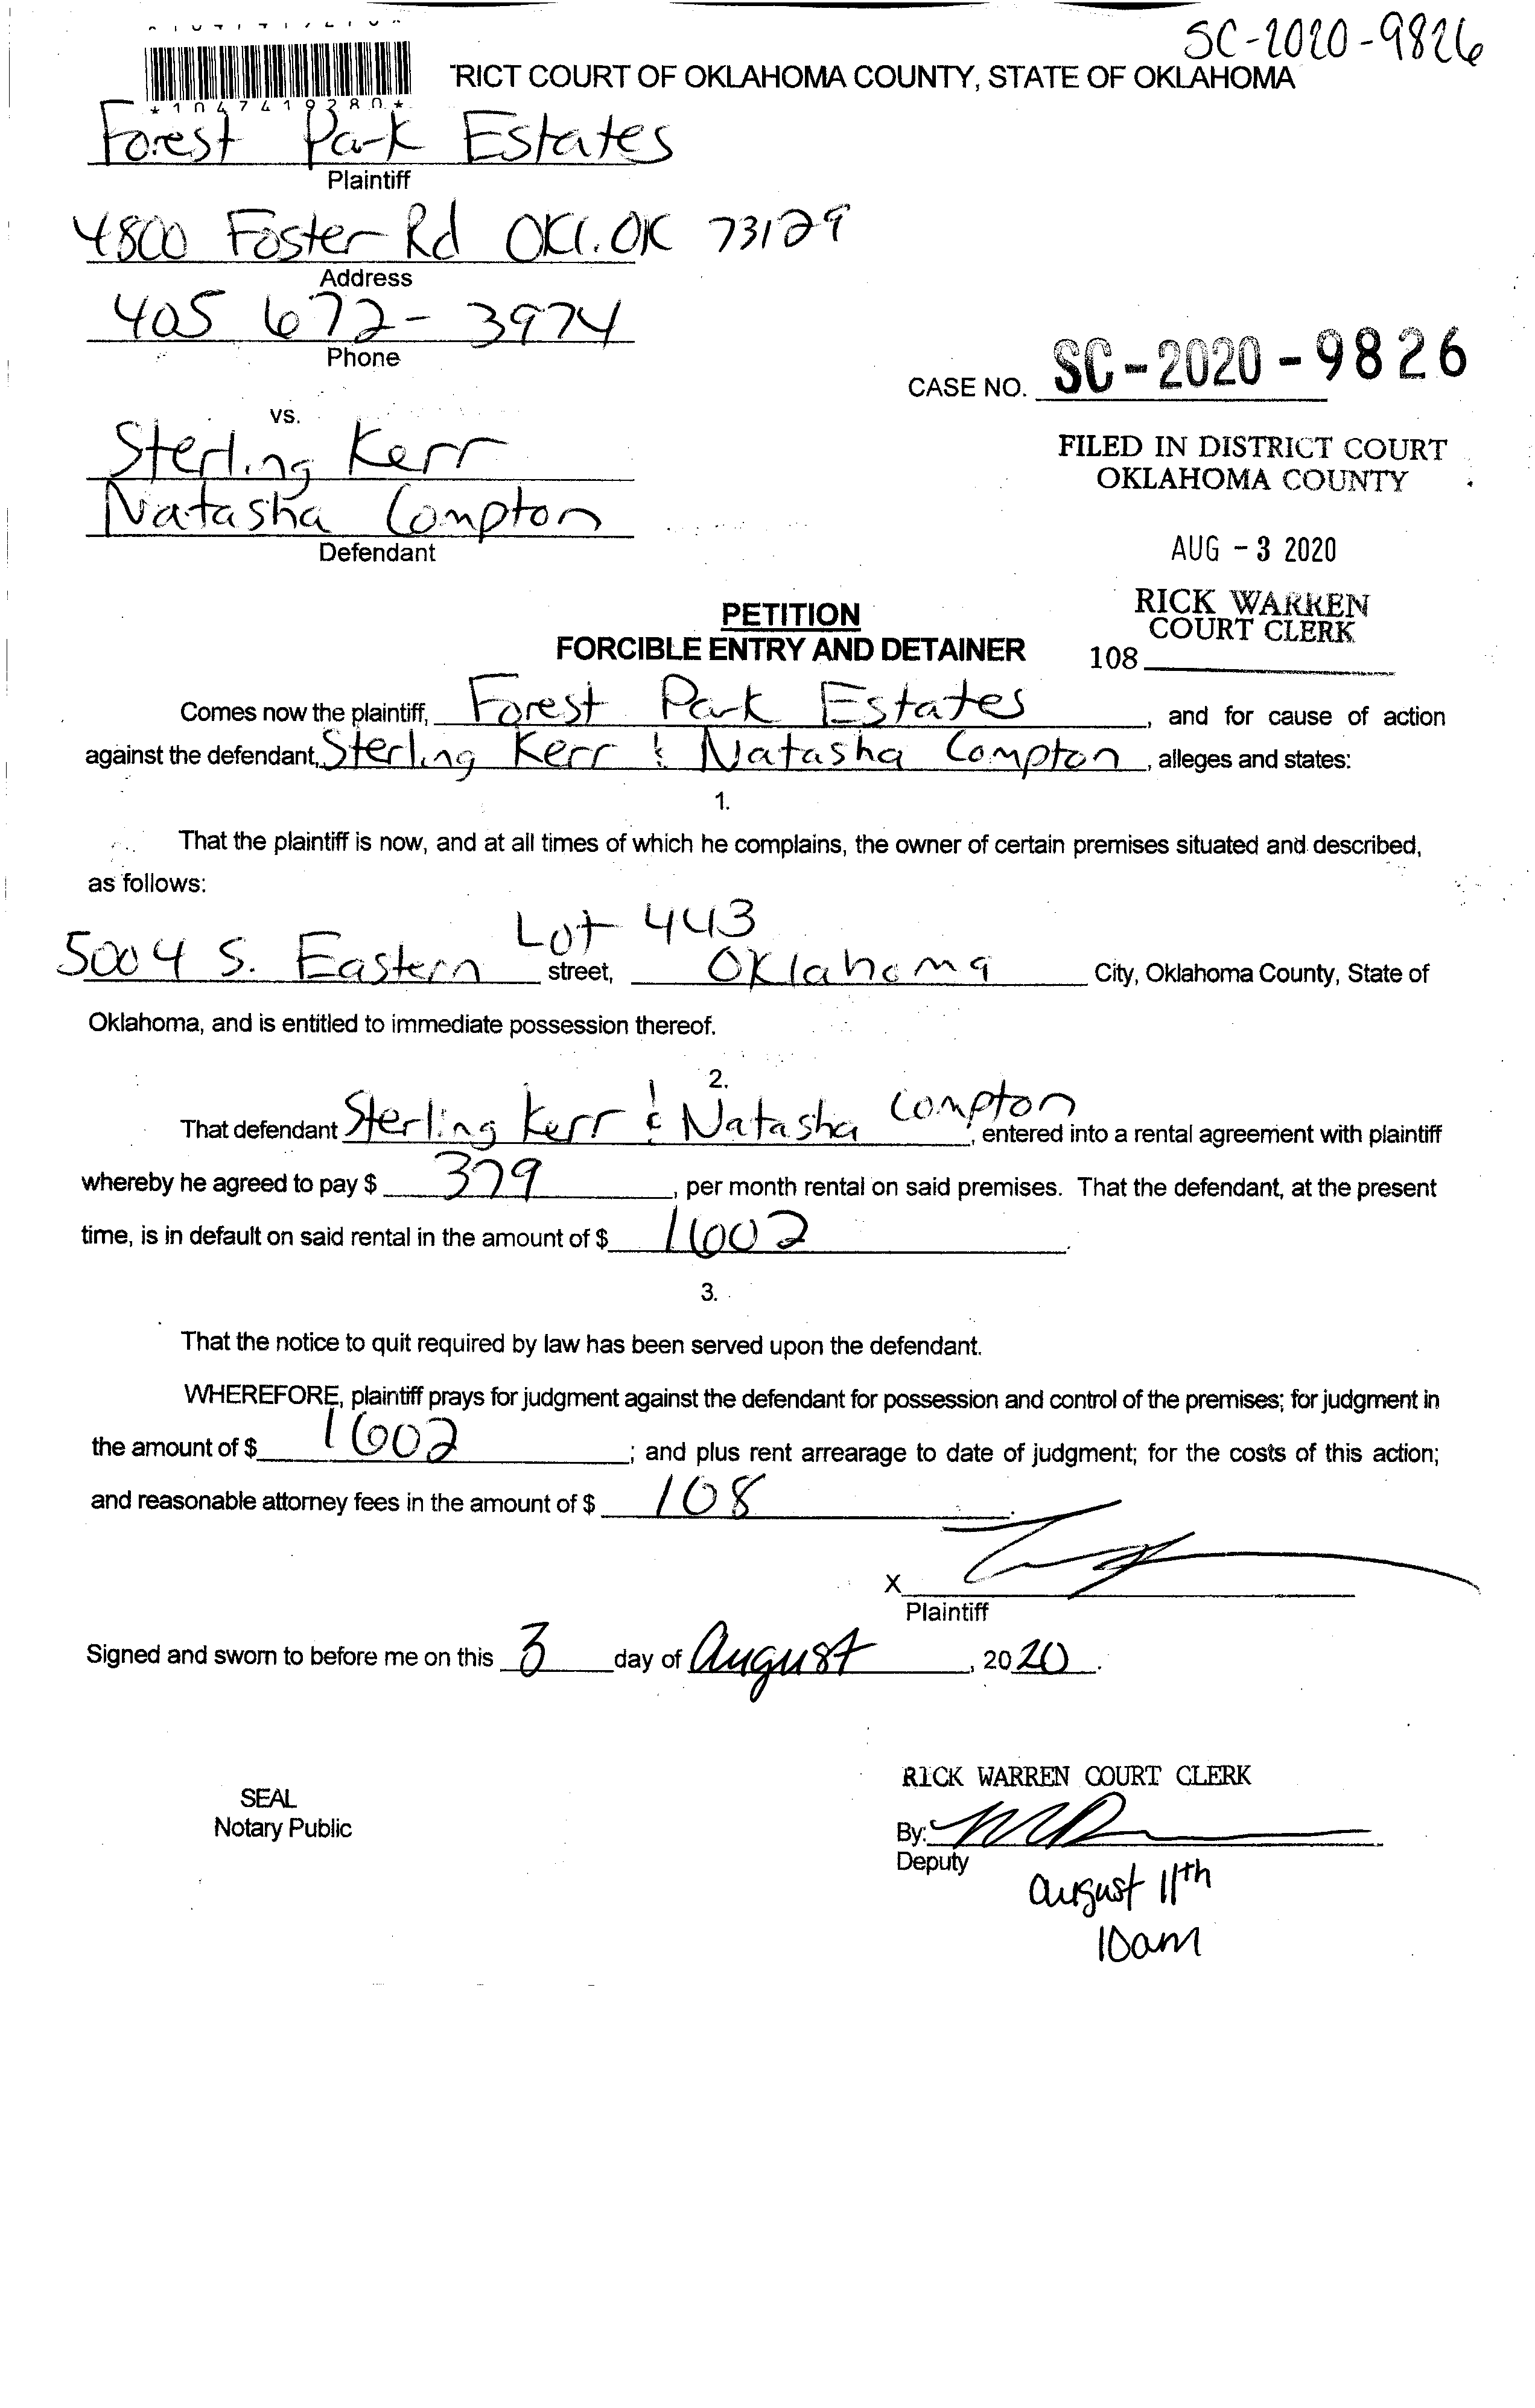 SC-2020-9826
*1047419280*
RICT COURT OF OKLAHOMA COUNTY, STATE OF OKLAHOMA
Forest Park Estates
Plaintiff
4800 Foster Rd OKC. OK 73129
Address
405 672-3974
Phone
CASE NO. SC-2020-9826
vs.
Sterling Kerr
Natasha Compton
Defendant
FILED IN DISTRICT COURT
OKLAHOMA COUNTY
AUG - 3 2020
RICK WARREN
COURT CLERK
108
PETITION
FORCIBLE ENTRY AND DETAINER
Comes now the plaintiff, Forest Park Estates, and for cause of action
against the defendant, Sterling Kerr & Natasha Compton, alleges and states:
1.
That the plaintiff is now, and at all times of which he complains, the owner of certain premises situated and described,
as follows:
Lot 443
5004 S. Eastern street, Oklahoma City, Oklahoma County, State of
Oklahoma, and is entitled to immediate possession thereof.
2.
That defendant Sterling Kerr & Natasha Compton, entered into a rental agreement with plaintiff
whereby he agreed to pay $ 379, per month rental on said premises. That the defendant, at the present
time, is in default on said rental in the amount of $ 1602.
3.
That the notice to quit required by law has been served upon the defendant.
WHEREFORE, plaintiff prays for judgment against the defendant for possession and control of the premises; for judgment in
the amount of $ 1602; and plus rent arrearage to date of judgment; for the costs of this action;
and reasonable attorney fees in the amount of $ 108.
X
Plaintiff
Signed and sworn to before me on this 3 day of August, 2020.
RICK WARREN COURT CLERK
SEAL
Notary Public
By:
Deputy
August 11th
10am